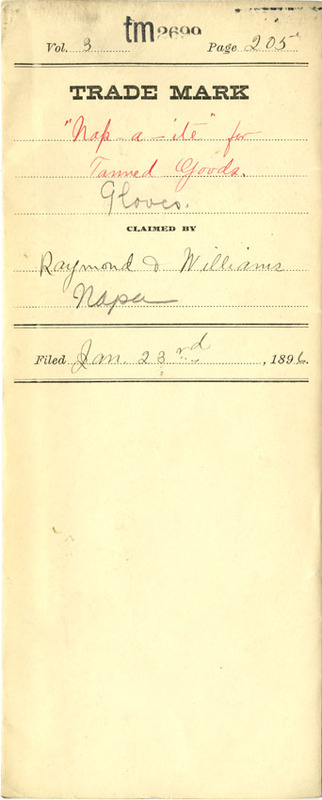 tm2699
Vol. 3 Page 205
TRADE MARK
"Nap-a-ite" for
Tanned Goods.
Gloves.
CLAIMED BY
Raymond & Williams
Napa
Filed Jan. 23rd, 1896.